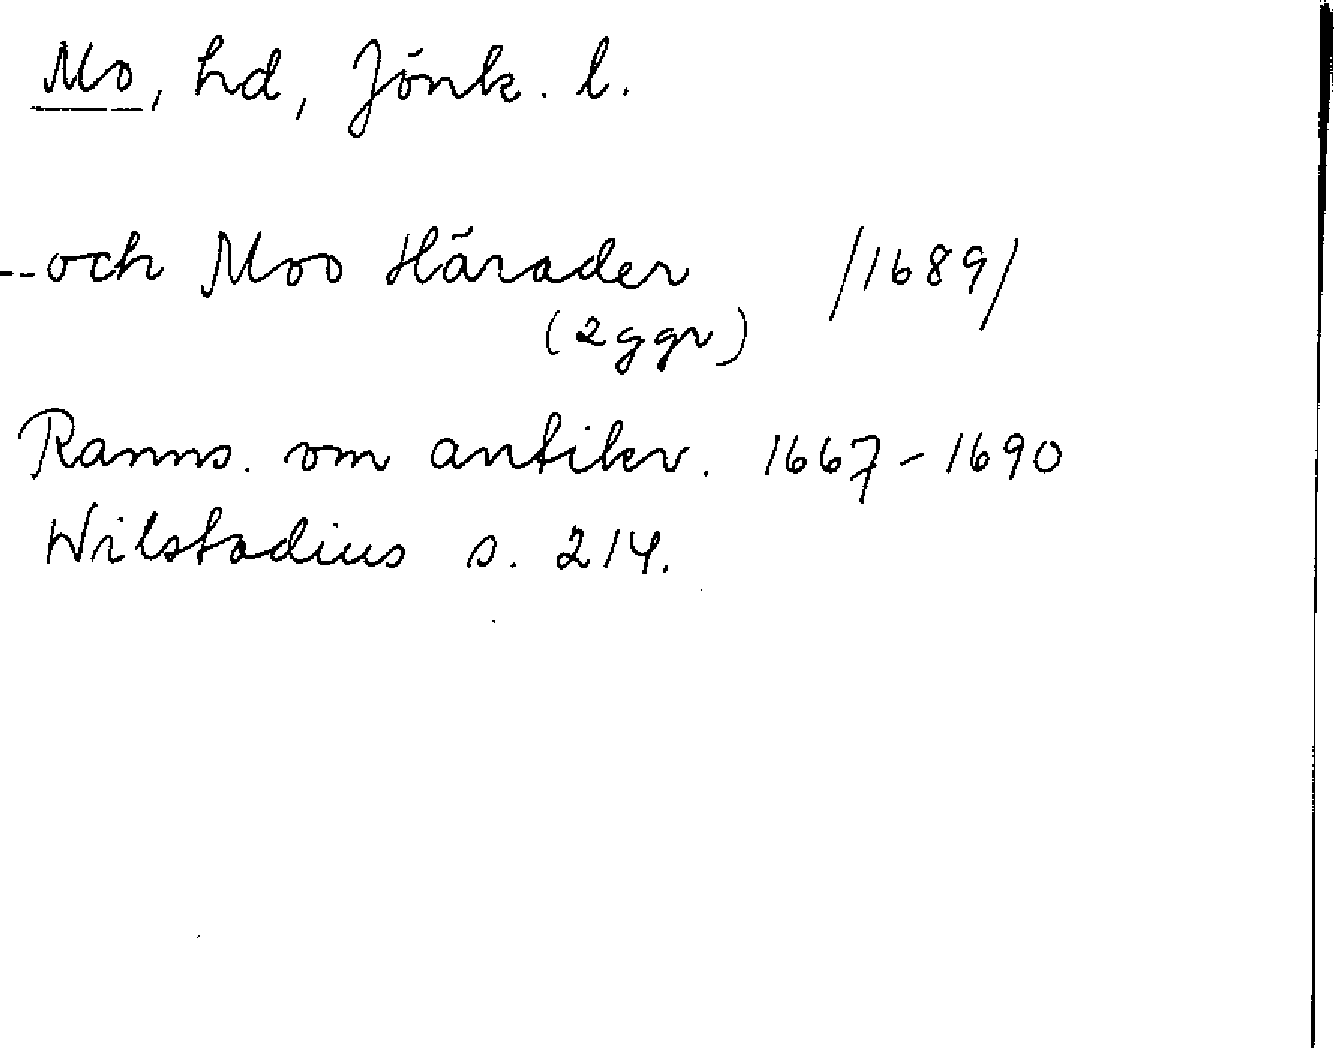 Mo, hd, Jönk. l.
--och Moo Härader /1689/
(2 ggr)
Ranns. om antikv. 1667-1690
Wilstadius s. 214.